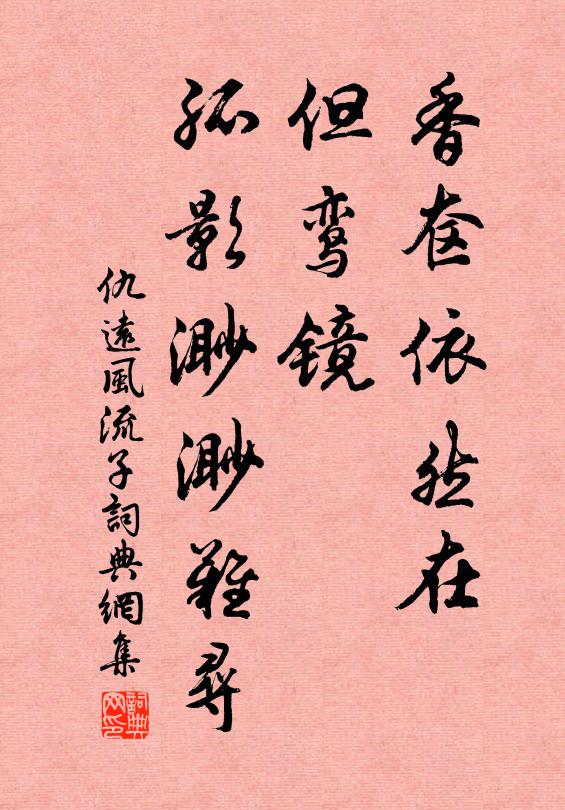 香奁依然在
但鸾镜
孤影渺渺難尋
仇遠風流子詞典網集
詞典网印